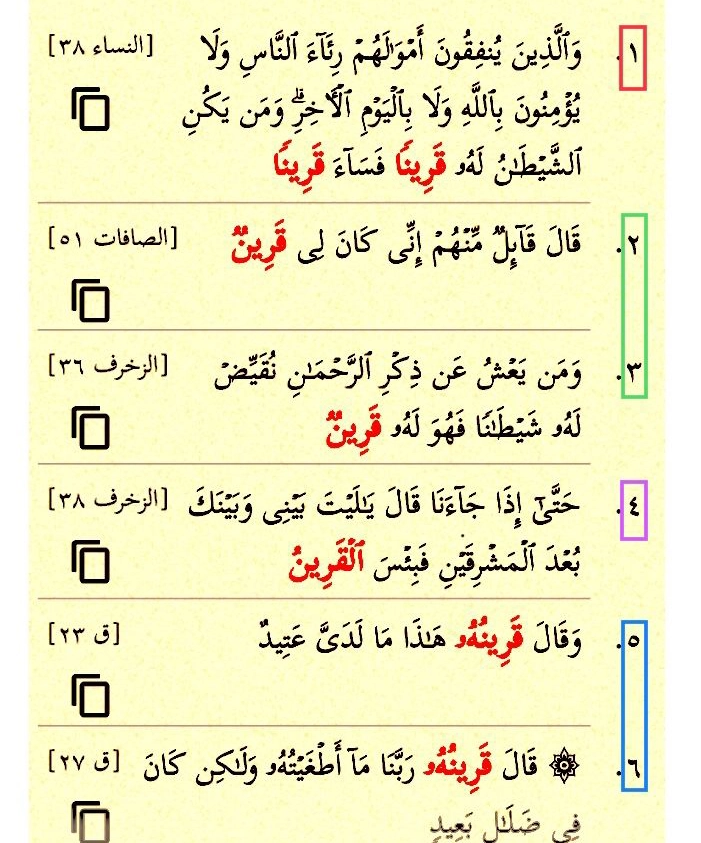 ١. وَٱلَّذِينَ يُنفِقُونَ أَمْوَٰلَهُمْ رِئَآءَ ٱلنَّاسِ وَلَا [النساء ٣٨]
يُؤْمِنُونَ بِٱللَّهِ وَلَا بِٱلْيَوْمِ ٱلْأَخِرِ ۗ وَمَن يَكُنِ
ٱلشَّيْطَـٰنُ لَهُۥ قَرِينًا فَسَآءَ قَرِينًا
٢. قَالَ قَآئِلٌ مِّنْهُمْ إِنِّى كَانَ لِى قَرِينٌ [الصافات ٥١]
٣. وَمَن يَعْشُ عَن ذِكْرِ ٱلرَّحْمَـٰنِ نُقَيِّضْ [الزخرف ٣٦]
لَهُۥ شَيْطَـٰنًا فَهُوَ لَهُۥ قَرِينٌ
٤. حَتَّىٰٓ إِذَا جَآءَنَا قَالَ يَـٰلَيْتَ بَيْنِى وَبَيْنَكَ [الزخرف ٣٨]
بُعْدَ ٱلْمَشْرِقَيْنِ فَبِئْسَ ٱلْقَرِينُ
٥. وَقَالَ قَرِينُهُۥ هَـٰذَا مَا لَدَىَّ عَتِيدٌ [ق ٢٣]
٦. ۞ قَالَ قَرِينُهُۥ رَبَّنَا مَآ أَطْغَيْتُهُۥ وَلَـٰكِن كَانَ [ق ٢٧]
فِى ضَلَـٰلٍ بَعِيدٍ